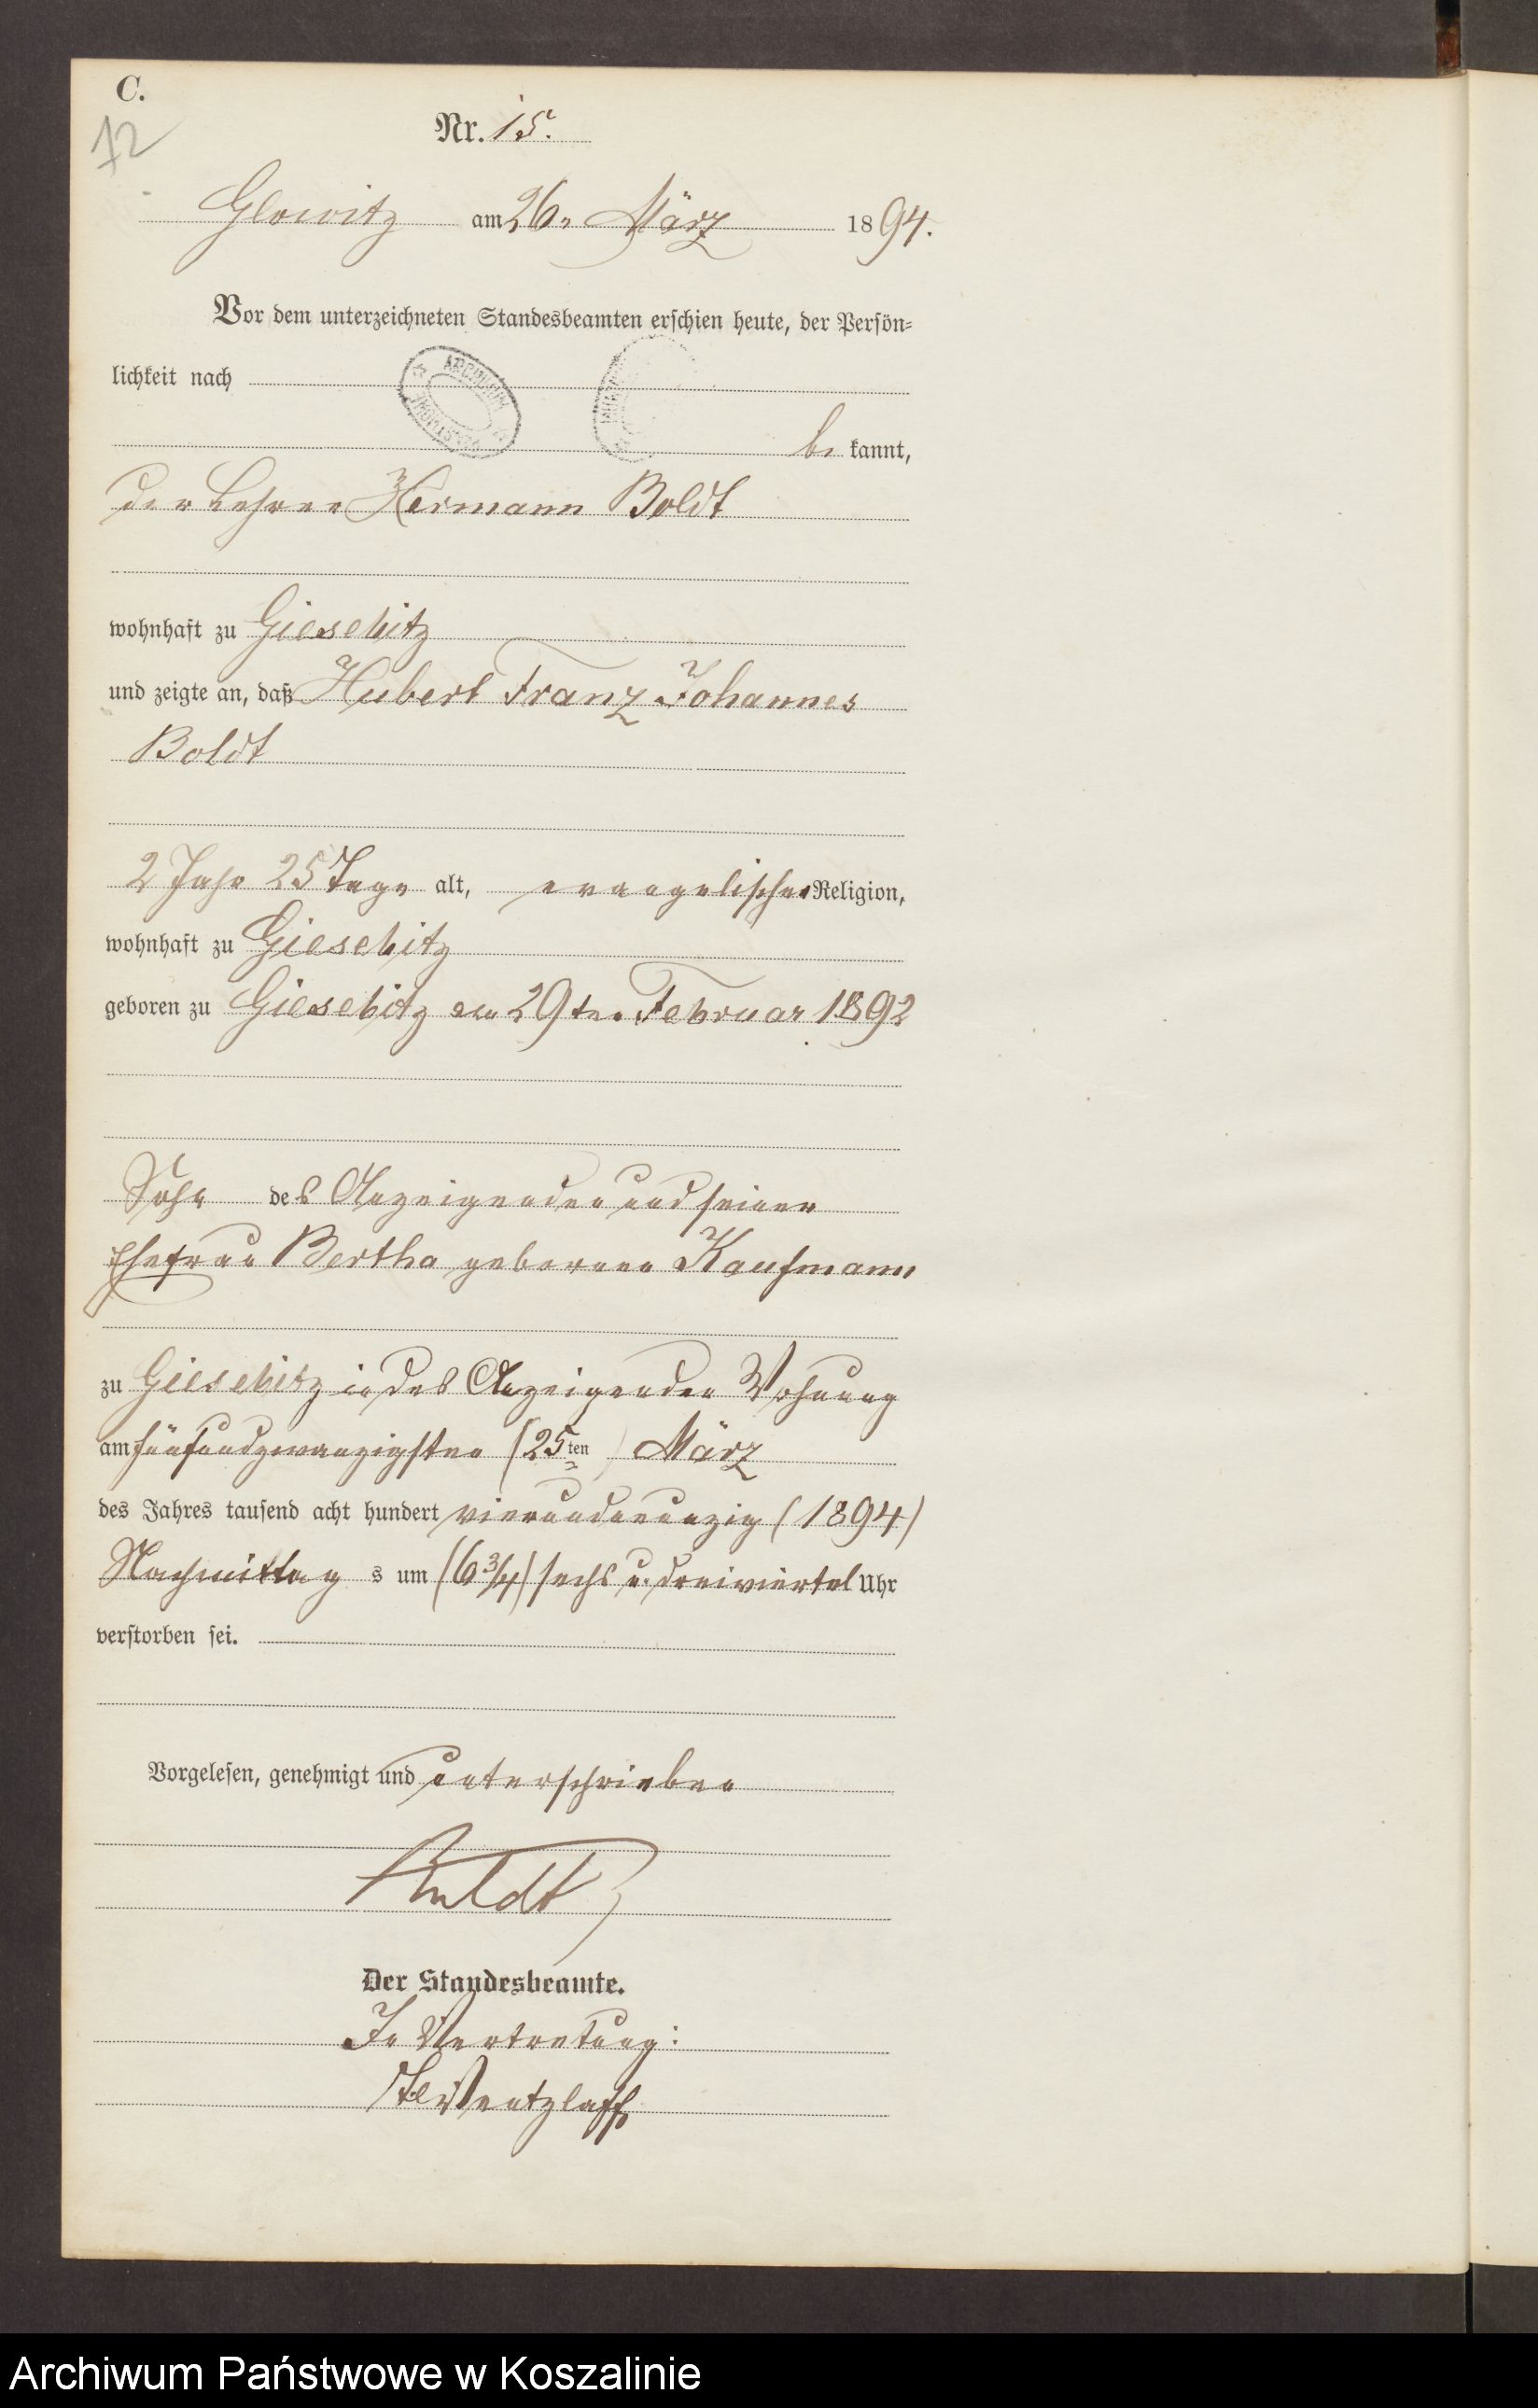 C.
12
Nr. 15.
Glowitz am 26n März 1894.
Vor dem unterzeichneten Standesbeamten erschien heute, der Persön-
lichkeit nach
ARCHIWUM
be kannt,
der Lehrer Hermann Boldt
wohnhaft zu Giesebitz
und zeigte an, daß Hubert Franz Johannes
Boldt
2 Jahr 25 Tage alt, evangelischer Religion,
wohnhaft zu Giesebitz
geboren zu Giesebitz am 29ten Februar 1892
Sohn des Anzeigenden und seiner
Ehefrau Bertha geborene Kaufmann
zu Giesebitz in des Anzeigenden Wohnung
am fünfundzwanzigsten (25ten) März
des Jahres tausend acht hundert vierundneunzig (1894)
Nachmittag s um (6 3/4) sechs u. dreiviertel Uhr
verstorben sei.
Vorgelesen, genehmigt und unterschrieben
Boldt
Der Standesbeamte.
In Vertretung:
Wentzlaff
Archiwum Państwowe w Koszalinie